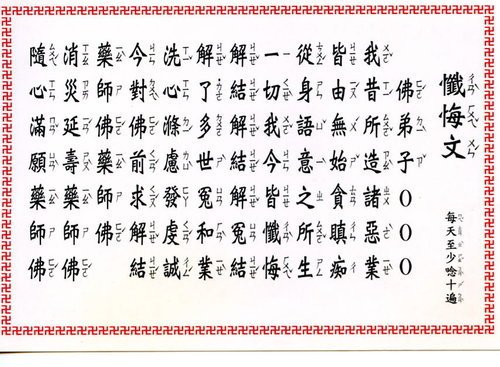 懺悔文
每天至少唸十遍
佛弟子○○○
我昔所造諸惡業
皆由無始貪瞋痴
從身語意之所生
一切我今皆懺悔
解結解結解冤結
解了多世冤和業
洗心滌慮發虔誠
今對佛前求解結
藥師佛藥師佛
消災延壽藥師佛
隨心滿願藥師佛